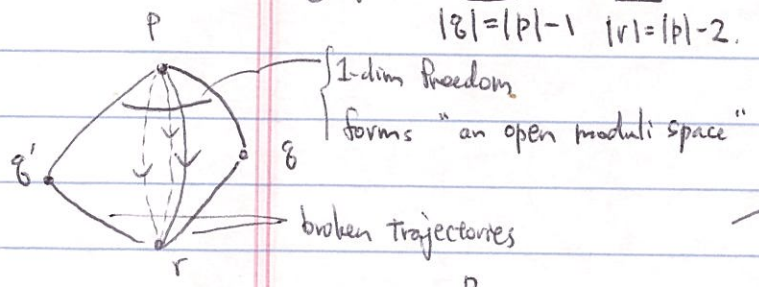 |q|=|p|-1 |r|=|p|-2.
p
1-dim freedom
forms "an open moduli space"
q' q
broken trajectories
r